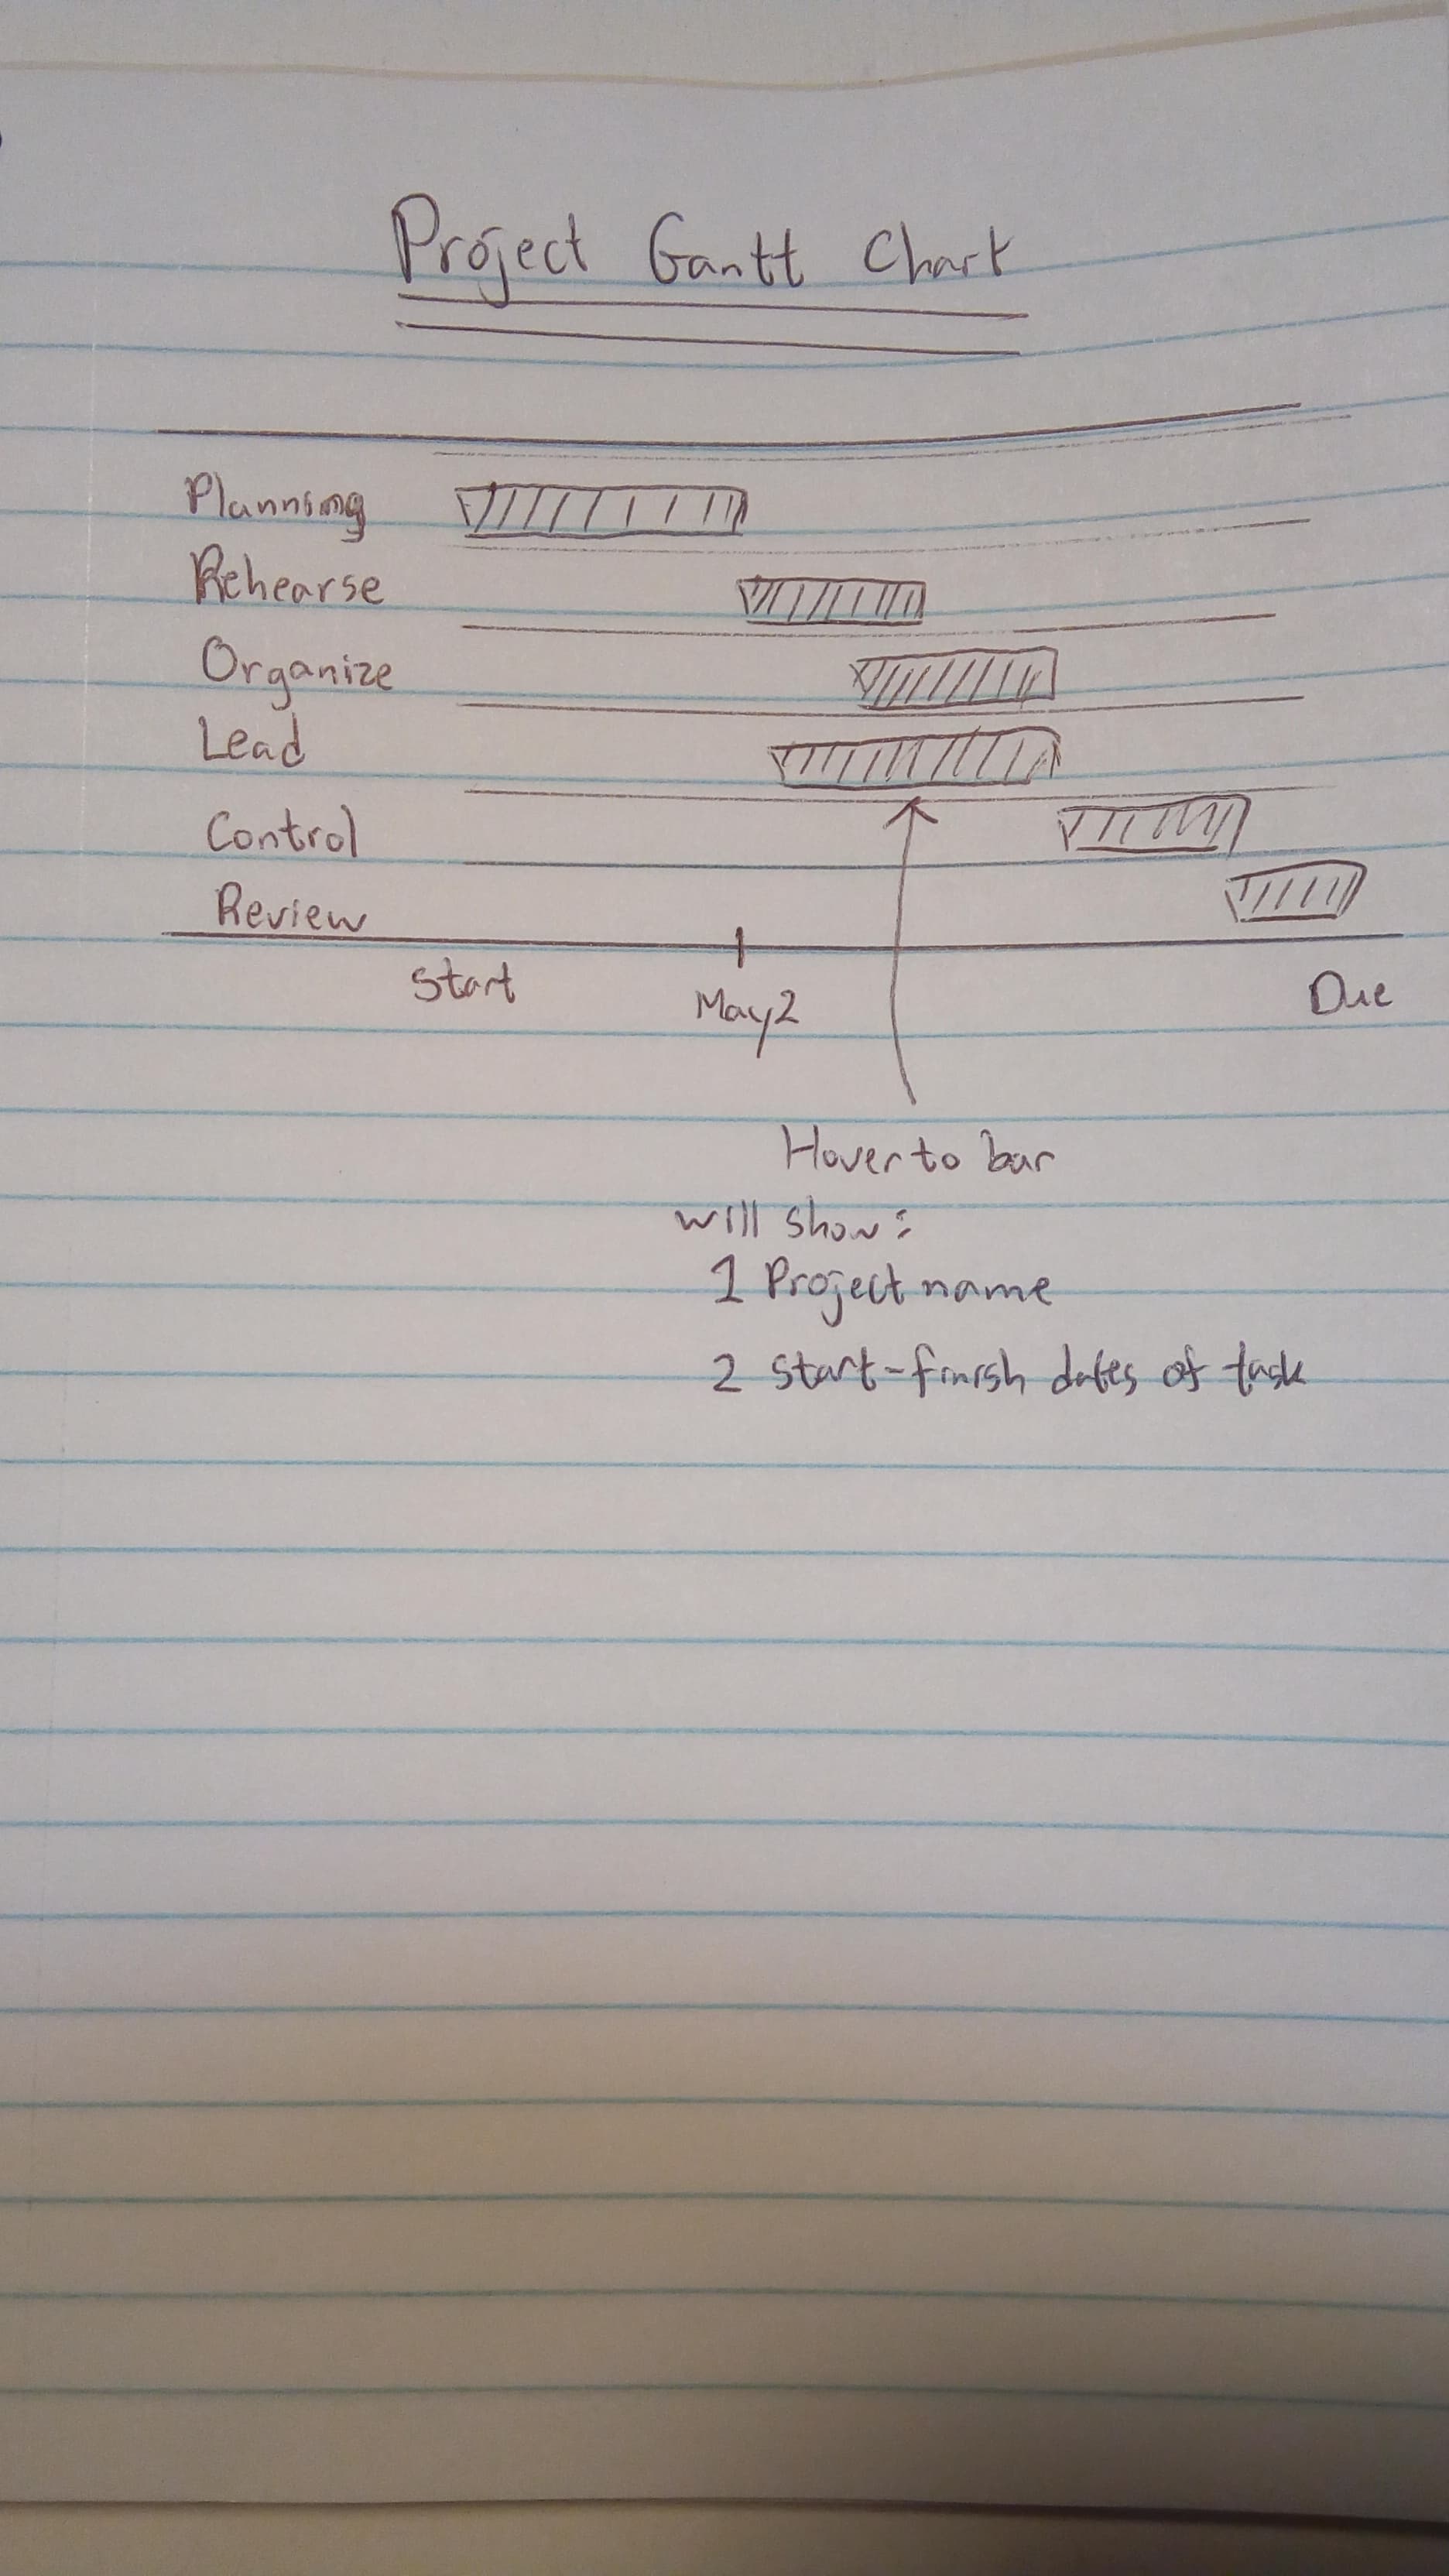 Project Gantt Chart
Planning
Rehearse
Organize
Lead
Control
Review
Start May 2 Due
Hover to bar
will show:
1 Project name
2 Start-finish dates of task